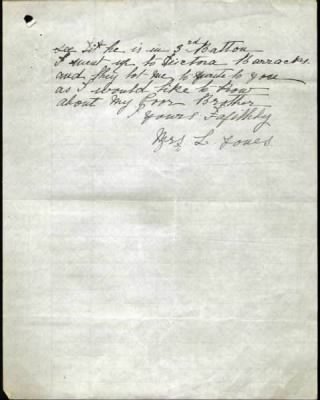 he is in 3rd Batton
I went up to Victora Barracks
and they tot me to write to you
as I would like to know
about my Poor Brother
yours Faithly
Mrs L Jones